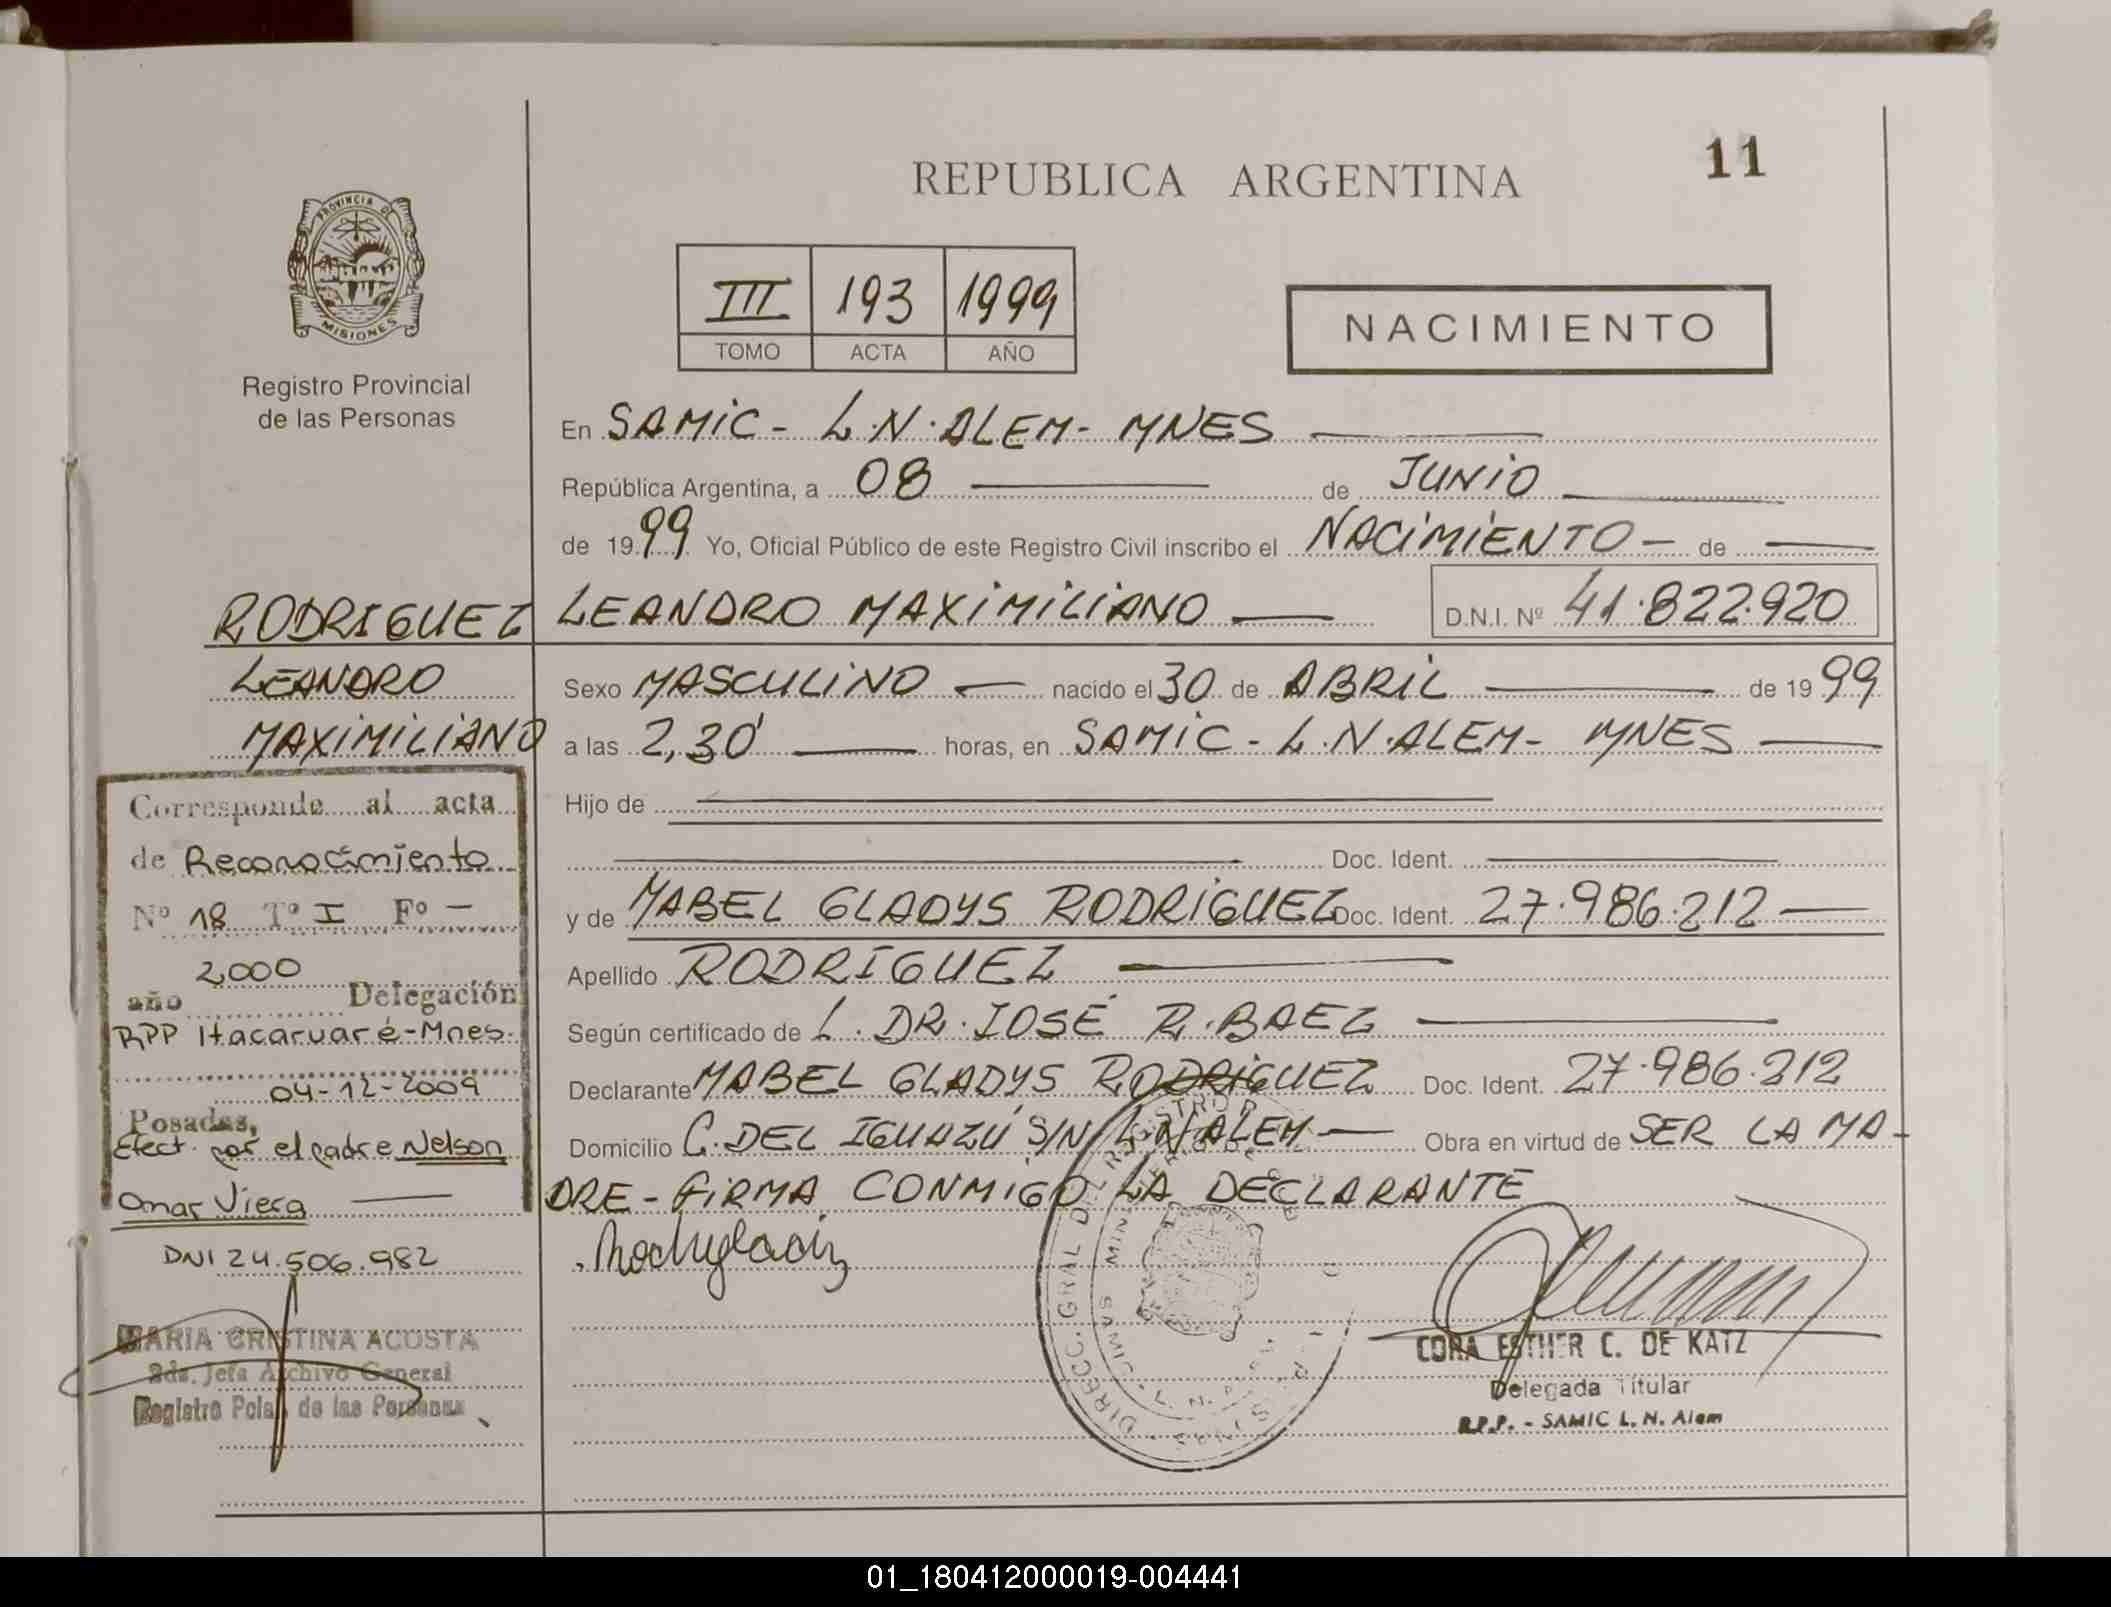 REPUBLICA ARGENTINA
11
PROVINCIA DE
MISIONES
Registro Provincial
de las Personas
III 193 1999
TOMO ACTA AÑO
NACIMIENTO
En SAMIC - L.N. ALEM - MNES
República Argentina, a 08 de JUNIO
de 1999 Yo, Oficial Público de este Registro Civil inscribo el NACIMIENTO - de
RODRIGUEZ LEANDRO MAXIMILIANO D.N.I. Nº 41.822.920
LEANDRO
MAXIMILIANO
Sexo MASCULINO nacido el 30 de ABRIL de 1999
a las 2,30 horas, en SAMIC - L.N. ALEM - MNES
Hijo de
Doc. Ident.
y de MABEL GLADYS RODRIGUEZ Doc. Ident. 27.986.212
Apellido RODRIGUEZ
Según certificado de L. DR. JOSÉ R. BAEZ
Declarante MABEL GLADYS RODRIGUEZ Doc. Ident. 27.986.212
Domicilio C. DEL IGUAZÚ S/N L.N ALEM Obra en virtud de SER LA MA-
DRE - FIRMA CONMIGO LA DECLARANTE
Corresponde al acta
de Reconocimiento
Nº 18 Tº I Fº -
2000
año Delegación
RPP Itacaruaré - Mnes.
04-12-2009
Posadas,
Efect. por el padre Nelson
Omar Viera
DNI 24.506.982
MARIA CRISTINA ACOSTA
2da. Jefa Archivo General
Registro Pcial. de las Personas
CORA ESTHER C. DE KATZ
Delegada Titular
R.P.P. - SAMIC L. N. Alem
01_180412000019-004441